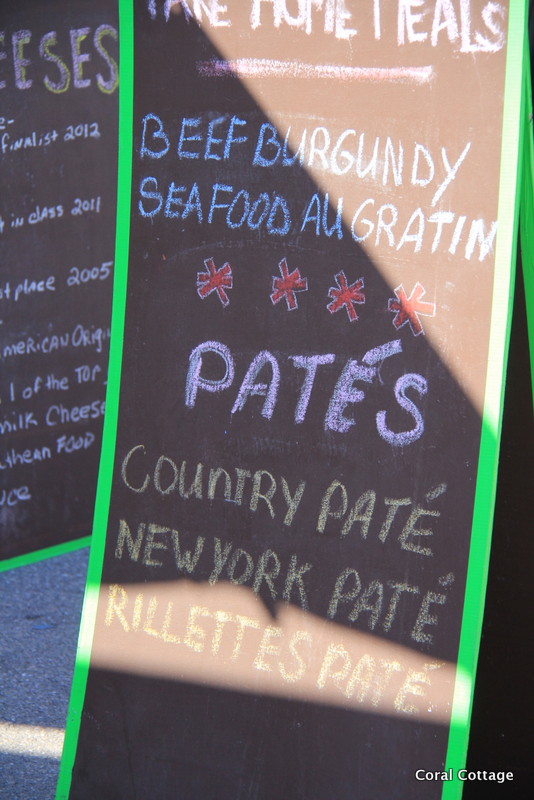 EESES
finalist 2012
in class 2011
place 2005
AMERICAN
1 of the TOP
milk Cheese
FOOD
TAKE HOME MEALS
BEEF BURGUNDY
SEAFOOD AU GRATIN
****
PATÉS
COUNTRY PATÉ
NEW YORK PATÉ
RILLETTES PATÉ
Coral Cottage